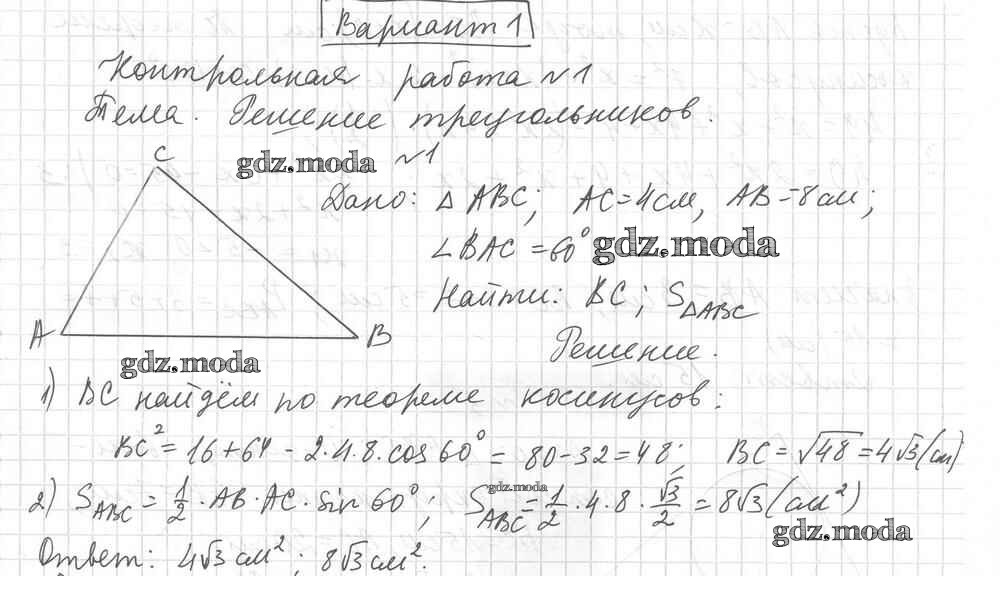 Вариант 1
Контрольная работа №1
Тема. Решение треугольников.
C
gdz.moda
№1
Дано: △ ABC; AC=4см, AB=8см;
∠BAC =60° gdz.moda
Найти: BC; S△ABC
A
B
Решение.
gdz.moda
1) BC найдём по теореме косинусов:
BC² = 16+64 - 2·4·8·cos 60° = 80-32=48; BC=√48=4√3(см)
gdz.moda
2) S ABC = 1/2 · AB·AC·sin 60°; S ABC = 1/2 ·4·8· √3/2 = 8√3(см²)
gdz.moda
Ответ: 4√3 см²; 8√3 см².